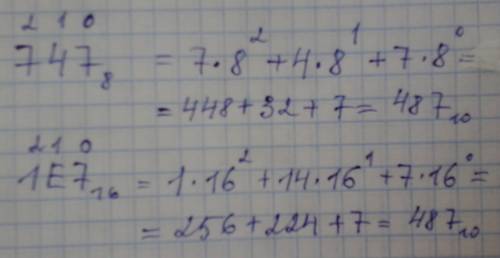 2 1 0
747₈ = 7·8² + 4·8¹ + 7·8⁰ =
= 448 + 32 + 7 = 487₁₀
2 1 0
1E7₁₆ = 1·16² + 14·16¹ + 7·16⁰ =
= 256 + 224 + 7 = 487₁₀